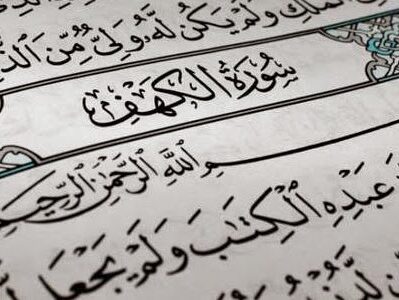 ٱلْمُلْكِ وَلَمْ يَكُن لَّهُۥ وَلِىٌّ مِّنَ
سُورَةُ الكَهْفِ
ـسم اللَّهِ الرَّحْمَٰنِ الرَّحِيمِ
عَبْدِهِ ٱلْكِتَٰبَ وَلَمْ يَجْعَل